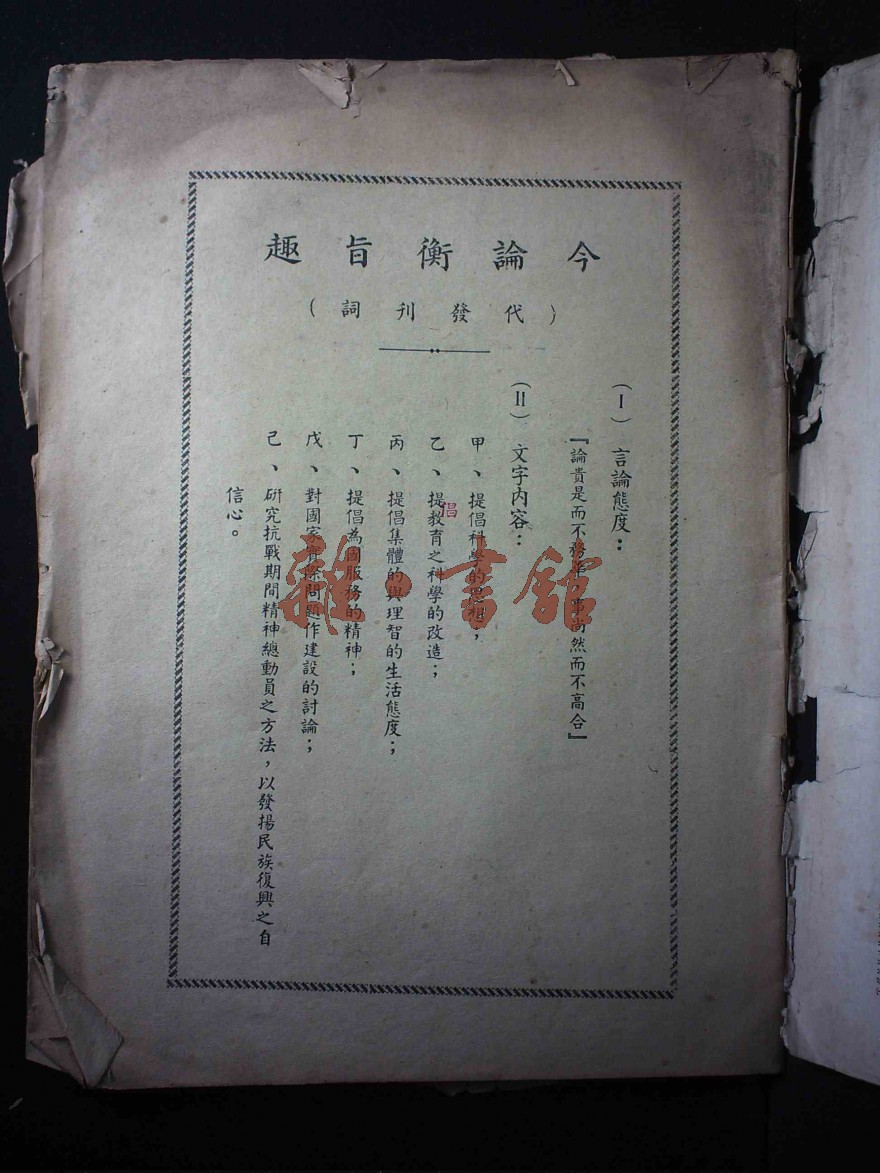 今論衡旨趣
(代發刊詞)
(Ⅰ) 言論態度：
『論貴是而不務華，事尚然而不高合』
(Ⅱ) 文字内容：
甲、提倡科學的思想；
乙、提倡教育之科學的改造；
丙、提倡集體的與理智的生活態度；
丁、提倡為國服務的精神；
戊、對國家實際問題作建設的討論；
己、研究抗戰期間精神總動員之方法，以發揚民族復興之自
信心。
雜·書館